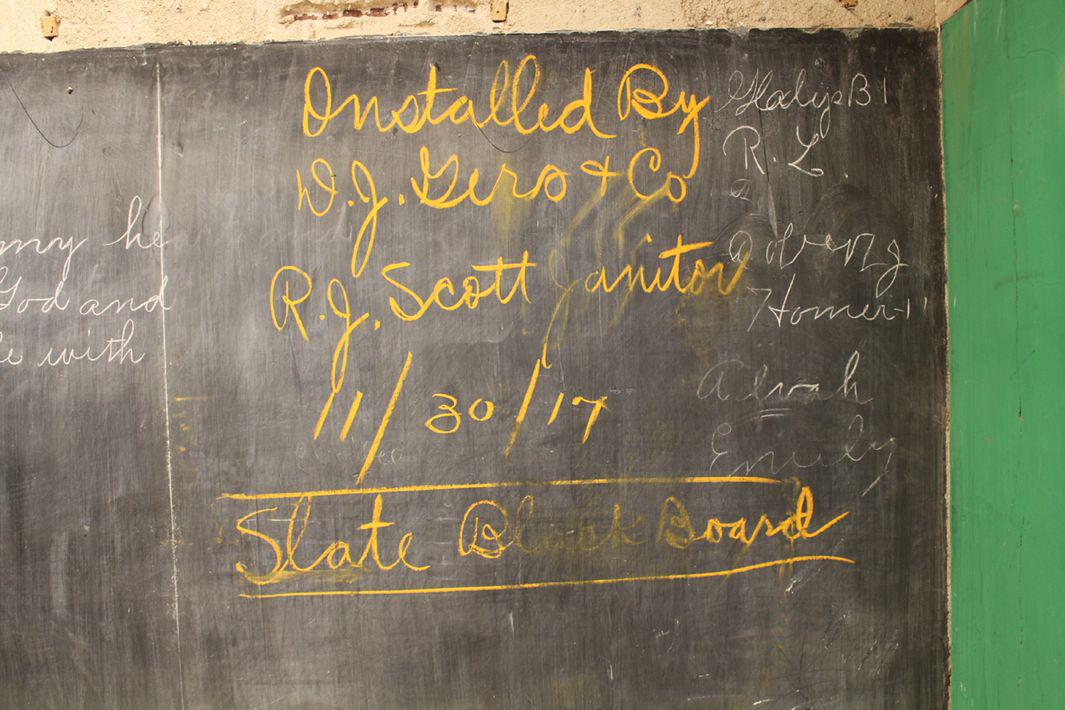 my he
God and
with
Installed By
W.J. Gero & Co
R.J. Scott Janitor
11/30/17
Slate Black Board
Gladys B
R. L.
Homer
Alvah
Emily